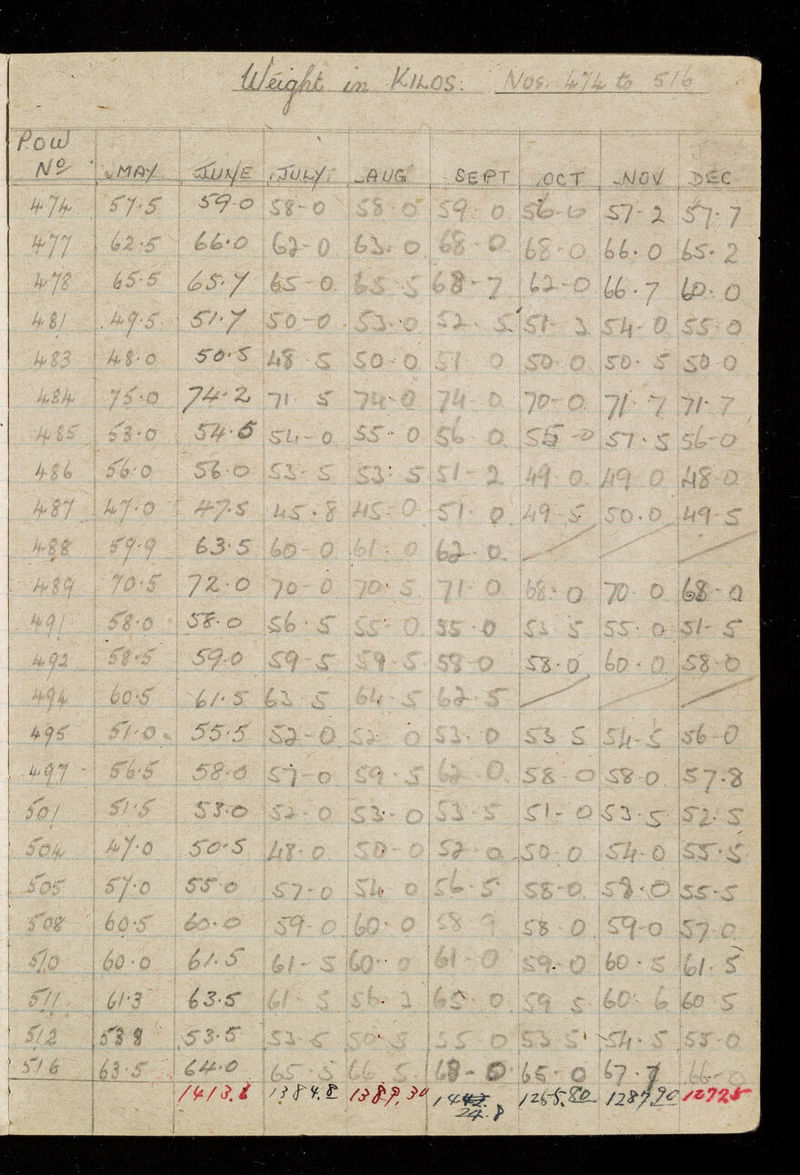 Weight in KILOS. Nos. 474 to 516
POW
No MAY JUNE JULY. AUG SEPT OCT NOV DEC
474 57.5 59.0 58-0 58-0 59-0 56-0 57-2 57.7
477 62.5 66.0 62-0 63.0 68-0 68-0 66.0 65.2
478 65.5 65.7 65-0 65 5 68-7 62-0 66.7 60.0
481 49.5 51.7 50-0 53.0 52.5 51-3 54-0 55-0
483 48.0 50.5 48-5 50-0 51 0 50.0 50.5 50 0
484 75.0 74.2 71 5 74-0 74 0 70-0 71.7 71.7
485 53.0 54.5 54-0 55-0 56 0 55-0 57.5 56-0
486 56.0 56.0 53-5 53.5 51-2 49 0 49 0 48.0
487 47.0 47.5 45.8 45.0 51 0 49.5 50.0 49-5
488 59.9 63.5 60-0 61.0 62.0
489 70.5 72.0 70-0 70.5 71 0 68-0 70 0 68-0
491 58.0 58.0 56.5 55-0 55.0 53 5 55.0 51-5
492 58.5 59.0 59-5 59.5 58-0 58.0 60.0 58-0
494 60.5 61.5 63 5 64.5 62.5
495 51.0 55.5 52-0 52 0 53.0 53 5 54-5 56-0
497 56.5 58.0 57-0 59.5 62-0 58-0 58-0 57.8
501 51.5 53.0 52-0 53-0 53 5 51-0 53.5 52.5
504 47.0 50.5 48-0 50-0 52-0 50.0 54-0 55.5
505 57.0 55.0 57-0 54 0 56.5 58-0 58.0 55-5
508 60.5 60.0 59-0 60.0 58 9 58.0 59-0 57-0
510 60.0 61.5 61-5 60-0 61-0 59.0 60.5 61.5
511 61.3 63.5 61-5 56.3 65.0 59 5 60.6 60 5
512 53 8 53.5 53.5 50.8 55 0 53 5 54.5 55-0
516 63.5 64.0 65.5 66 5 68-0 65-0 67.7 66-0
1413.6 1384.8 1389.30 1265.80 1287.90 12725
24.8